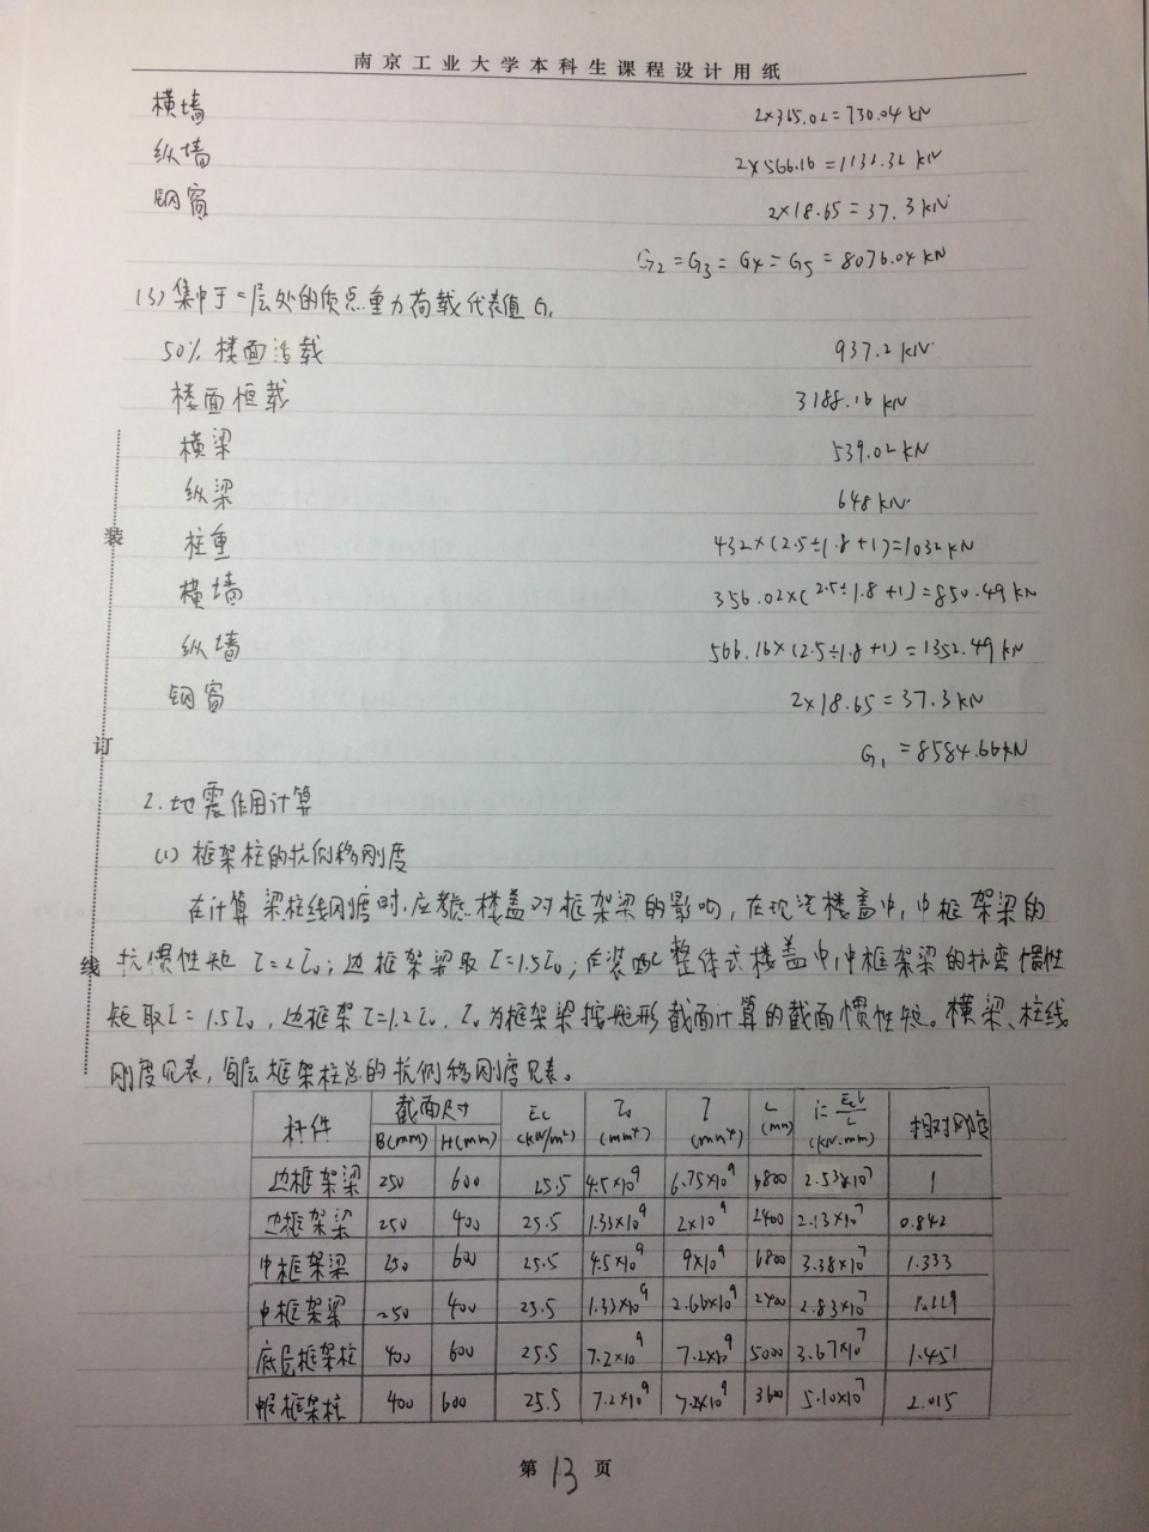 南京工业大学本科生课程设计用纸
横墙 2×365.02=730.04 kN
纵墙 2×566.16=1132.32 kN
钢窗 2×18.65=37.3 kN
G2=G3=G4=G5=8076.04 kN
(3) 集中于二层处的质点重力荷载代表值 G1
50% 楼面活载 937.2 kN
楼面恒载 3188.16 kN
横梁 539.02 kN
纵梁 648 kN
柱重 432×(2.5÷1.8+1)=1032 kN
横墙 356.02×(2.5÷1.8+1)=850.49 kN
纵墙 566.16×(2.5÷1.8+1)=1352.49 kN
钢窗 2×18.65=37.3 kN
G1=8584.66kN
2.地震作用计算
(1) 框架柱的抗侧移刚度
在计算梁柱线刚度时,应考虑楼盖对框架梁的影响,在现浇楼盖中,中框架梁的
抗惯性矩 I=2I0;边框架梁取 I=1.5I0;在装配整体式楼盖中,中框架梁的抗弯惯性
矩取I=1.5I0,边框架I=1.2I0,I0为框架梁按矩形截面计算的截面惯性矩。横梁、柱线
刚度见表,每层框架柱总的抗侧移刚度见表。
杆件 截面尺寸 B(mm) H(mm) Ec (kN/m²) I0 (mm⁴) I (mm⁴) L (mm) i=EcI/L (kN·mm) 相对刚度
边框架梁 250 600 25.5 4.5×10⁹ 6.75×10⁹ 6800 2.53×10⁷ 1
边框架梁 250 400 25.5 1.33×10⁹ 2×10⁹ 2400 2.13×10⁷ 0.842
中框架梁 250 600 25.5 4.5×10⁹ 9×10⁹ 6800 3.38×10⁷ 1.333
中框架梁 250 400 25.5 1.33×10⁹ 2.66×10⁹ 2400 2.83×10⁷ 1.119
底层框架柱 400 600 25.5 7.2×10⁹ 7.2×10⁹ 5000 3.67×10⁷ 1.451
框架柱 400 600 25.5 7.2×10⁹ 7.2×10⁹ 3600 5.10×10⁷ 2.015
第 13 页
装
订
线